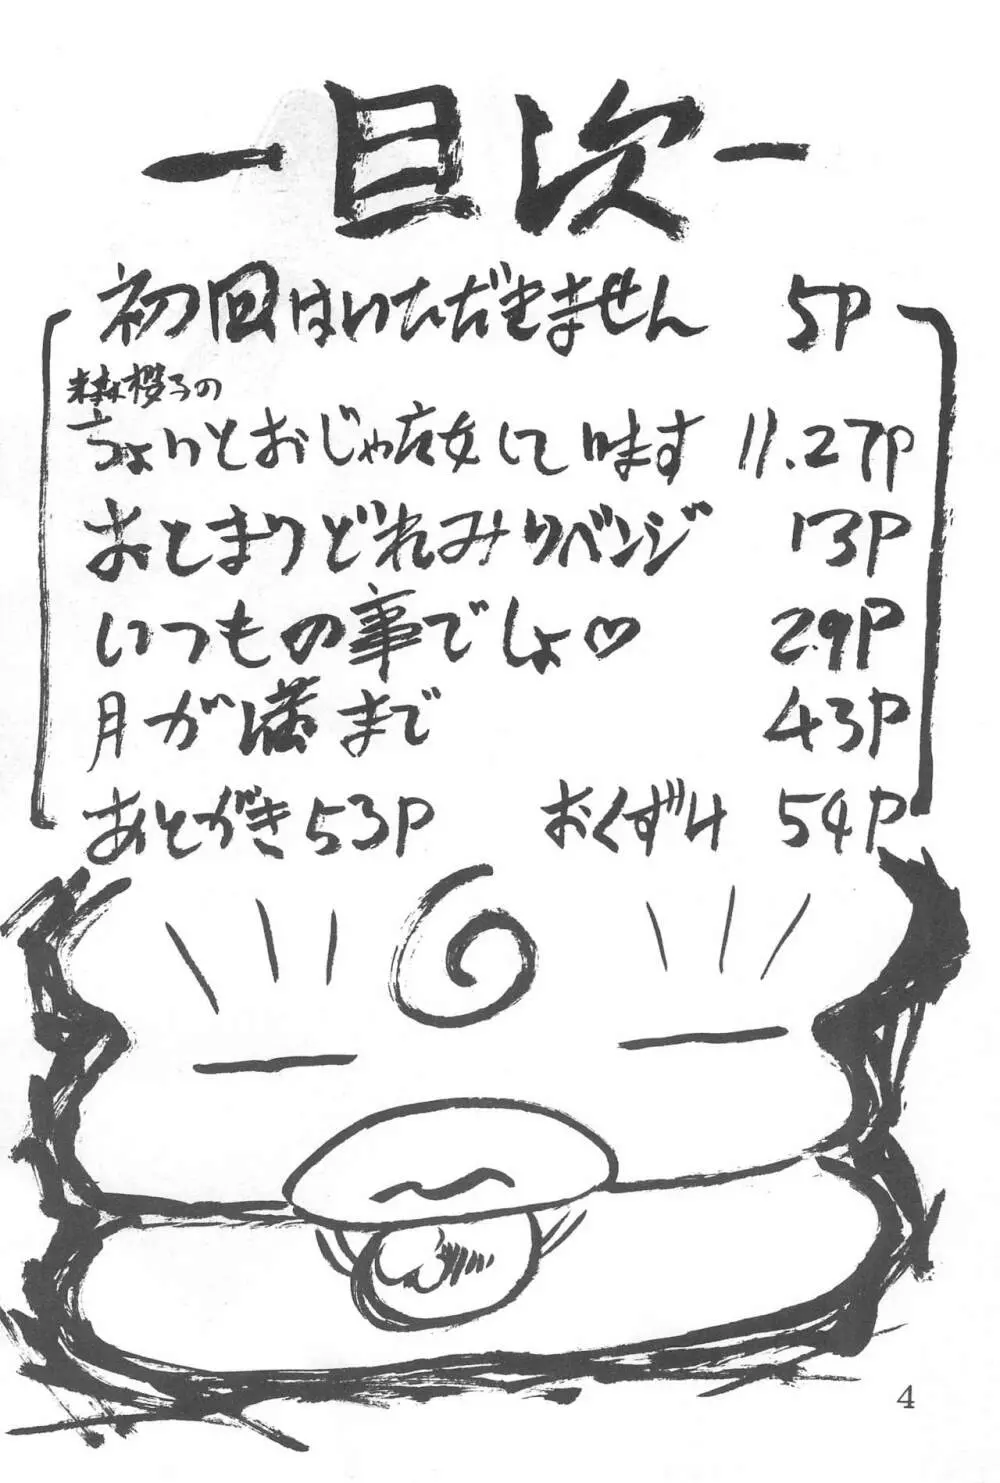 ー目次ー
初回はいただきません 5P
森櫻子の
ちょいとおじゃ魔女して居ます 11.27P
おとまりどれみリベンジ 13P
いつもの事でしょ♡ 29P
月が満まで 43P
あとがき 53P おくずけ 54P
4